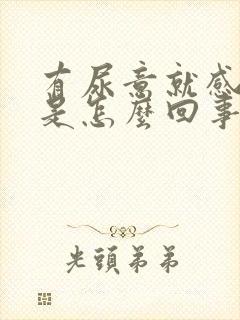 有尿意就感
是怎麼回事
光頭弟弟